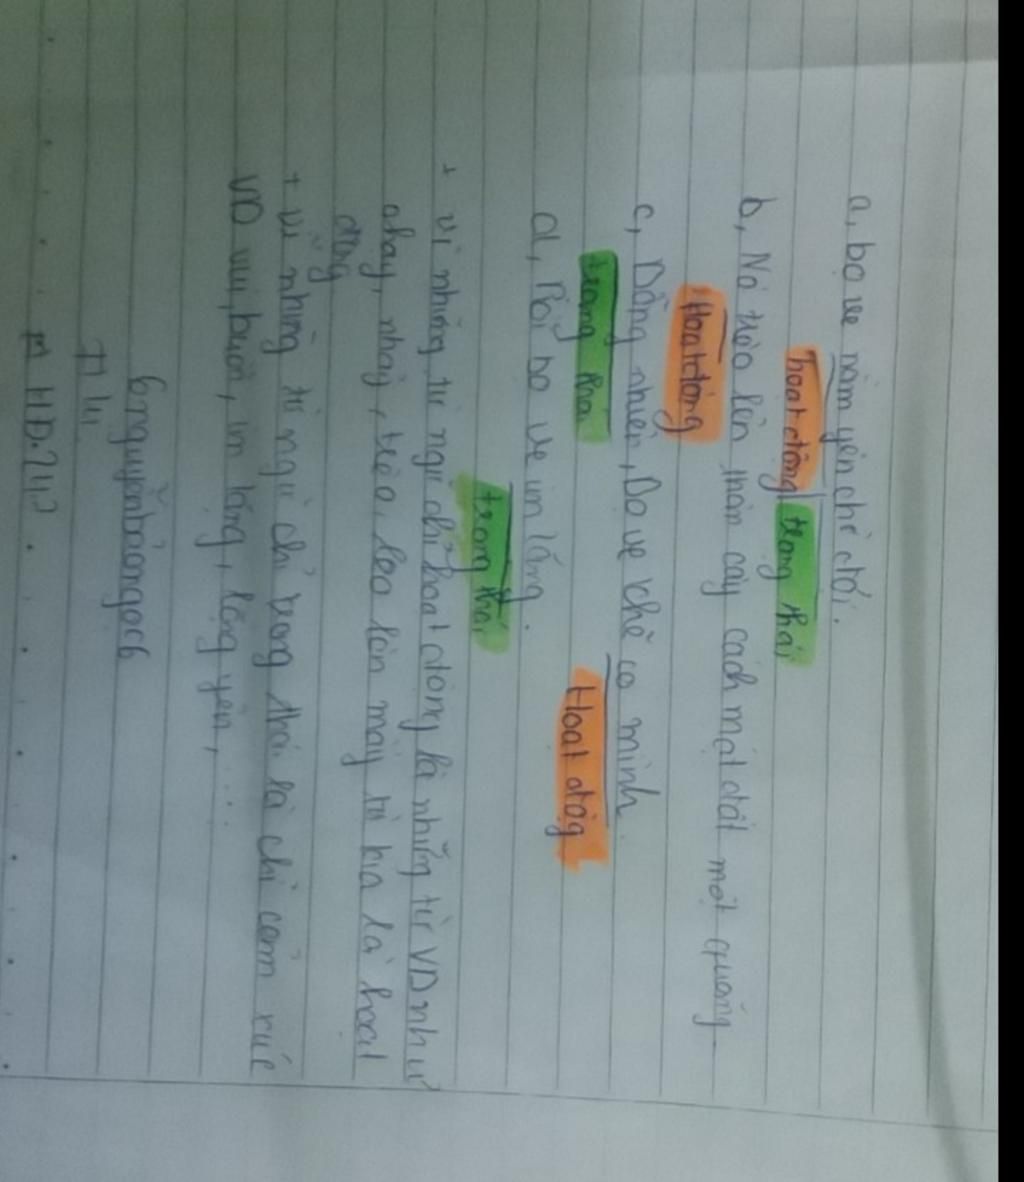 a, bọ ve nằm yên chờ đợi.
hoạt động trạng thái
b, Nó trèo lên thân cây cách mặt đất một quãng
Hoạt động
c, Dõng nhiên, bọ ve khẽ co mình.
trạng thái Hoạt động
d, Rồi bọ ve im lặng.
trạng thái
+ vì những từ ngữ chỉ hoạt động là những từ VD như
chạy, nhảy, trèo, leo lên mấy từ kia là hoạt
động
+ vì những từ ngữ chỉ trạng thái là chỉ cảm xúc
VD vui, buồn, im lặng, lặng yên, ....
6nguyễnbảongọc6